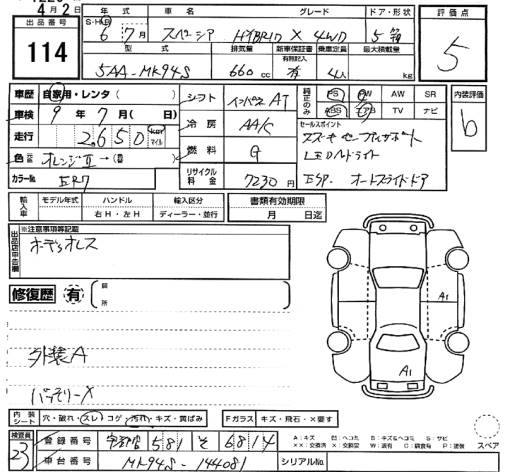 4月2日
出品番号
114
年式 車名 グレード ドア・形状
S・H・R 6 7月 スペーシア HYBRID X 4WD 5
型式 排気量 新車保証書 有無記入 乗車定員 最大積載量
5AA-MK94S 660cc 有 4人 kg
評価点
5
内装評価
b
車歴 自家用・レンタ( )
車検 9年 7月( 日)
走行 2650 km マイル
色 オレンジⅡ→( )
カラーNo.
シフト インパネAT
冷房 AAC
燃料 G
リサイクル料金 7230円
純正のみ PS PW AW SR
ABS エアB TV ナビ
セールスポイント
スズキセーフティサポート
LEDヘッドライト
ESP. オートスライドドア
輸入車 モデル年式 ハンドル 右H・左H 輸入区分 ディーラー・並行
書類有効期限 月 日迄
出品店申告欄
※注意事項等記載
ボデーオレス
修復歴 有 箇所
外装A
バッテリーX
A1
A1
内装シート 穴・破れ・スレ・コゲ・汚れ・キズ・黄ばみ
Fガラス キズ・飛石・×要す
スペア
検査員 23
登録番号 宇都宮 581 そ 6814
車台番号 MK94S-144081
シリアルNo.
A:キズ 凹:ヘコミ B:キズ&ヘコミ S:サビ
××:交換済 ×:要交換 W:波有 C:腐食有 P:塗装